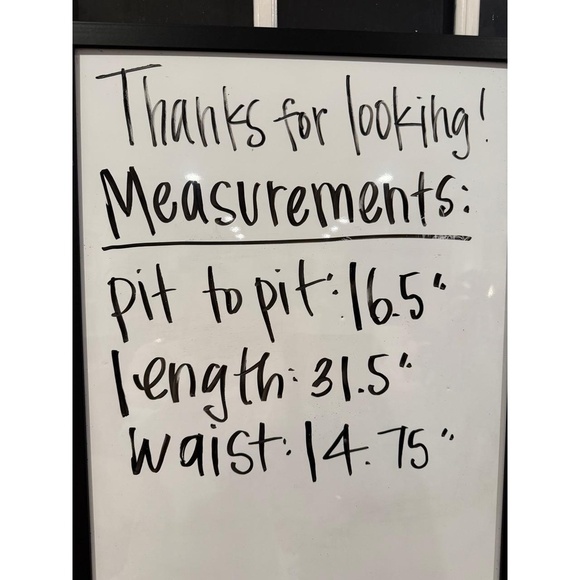 Thanks for looking!
Measurements:
pit to pit: 16.5"
length: 31.5"
waist: 14.75"